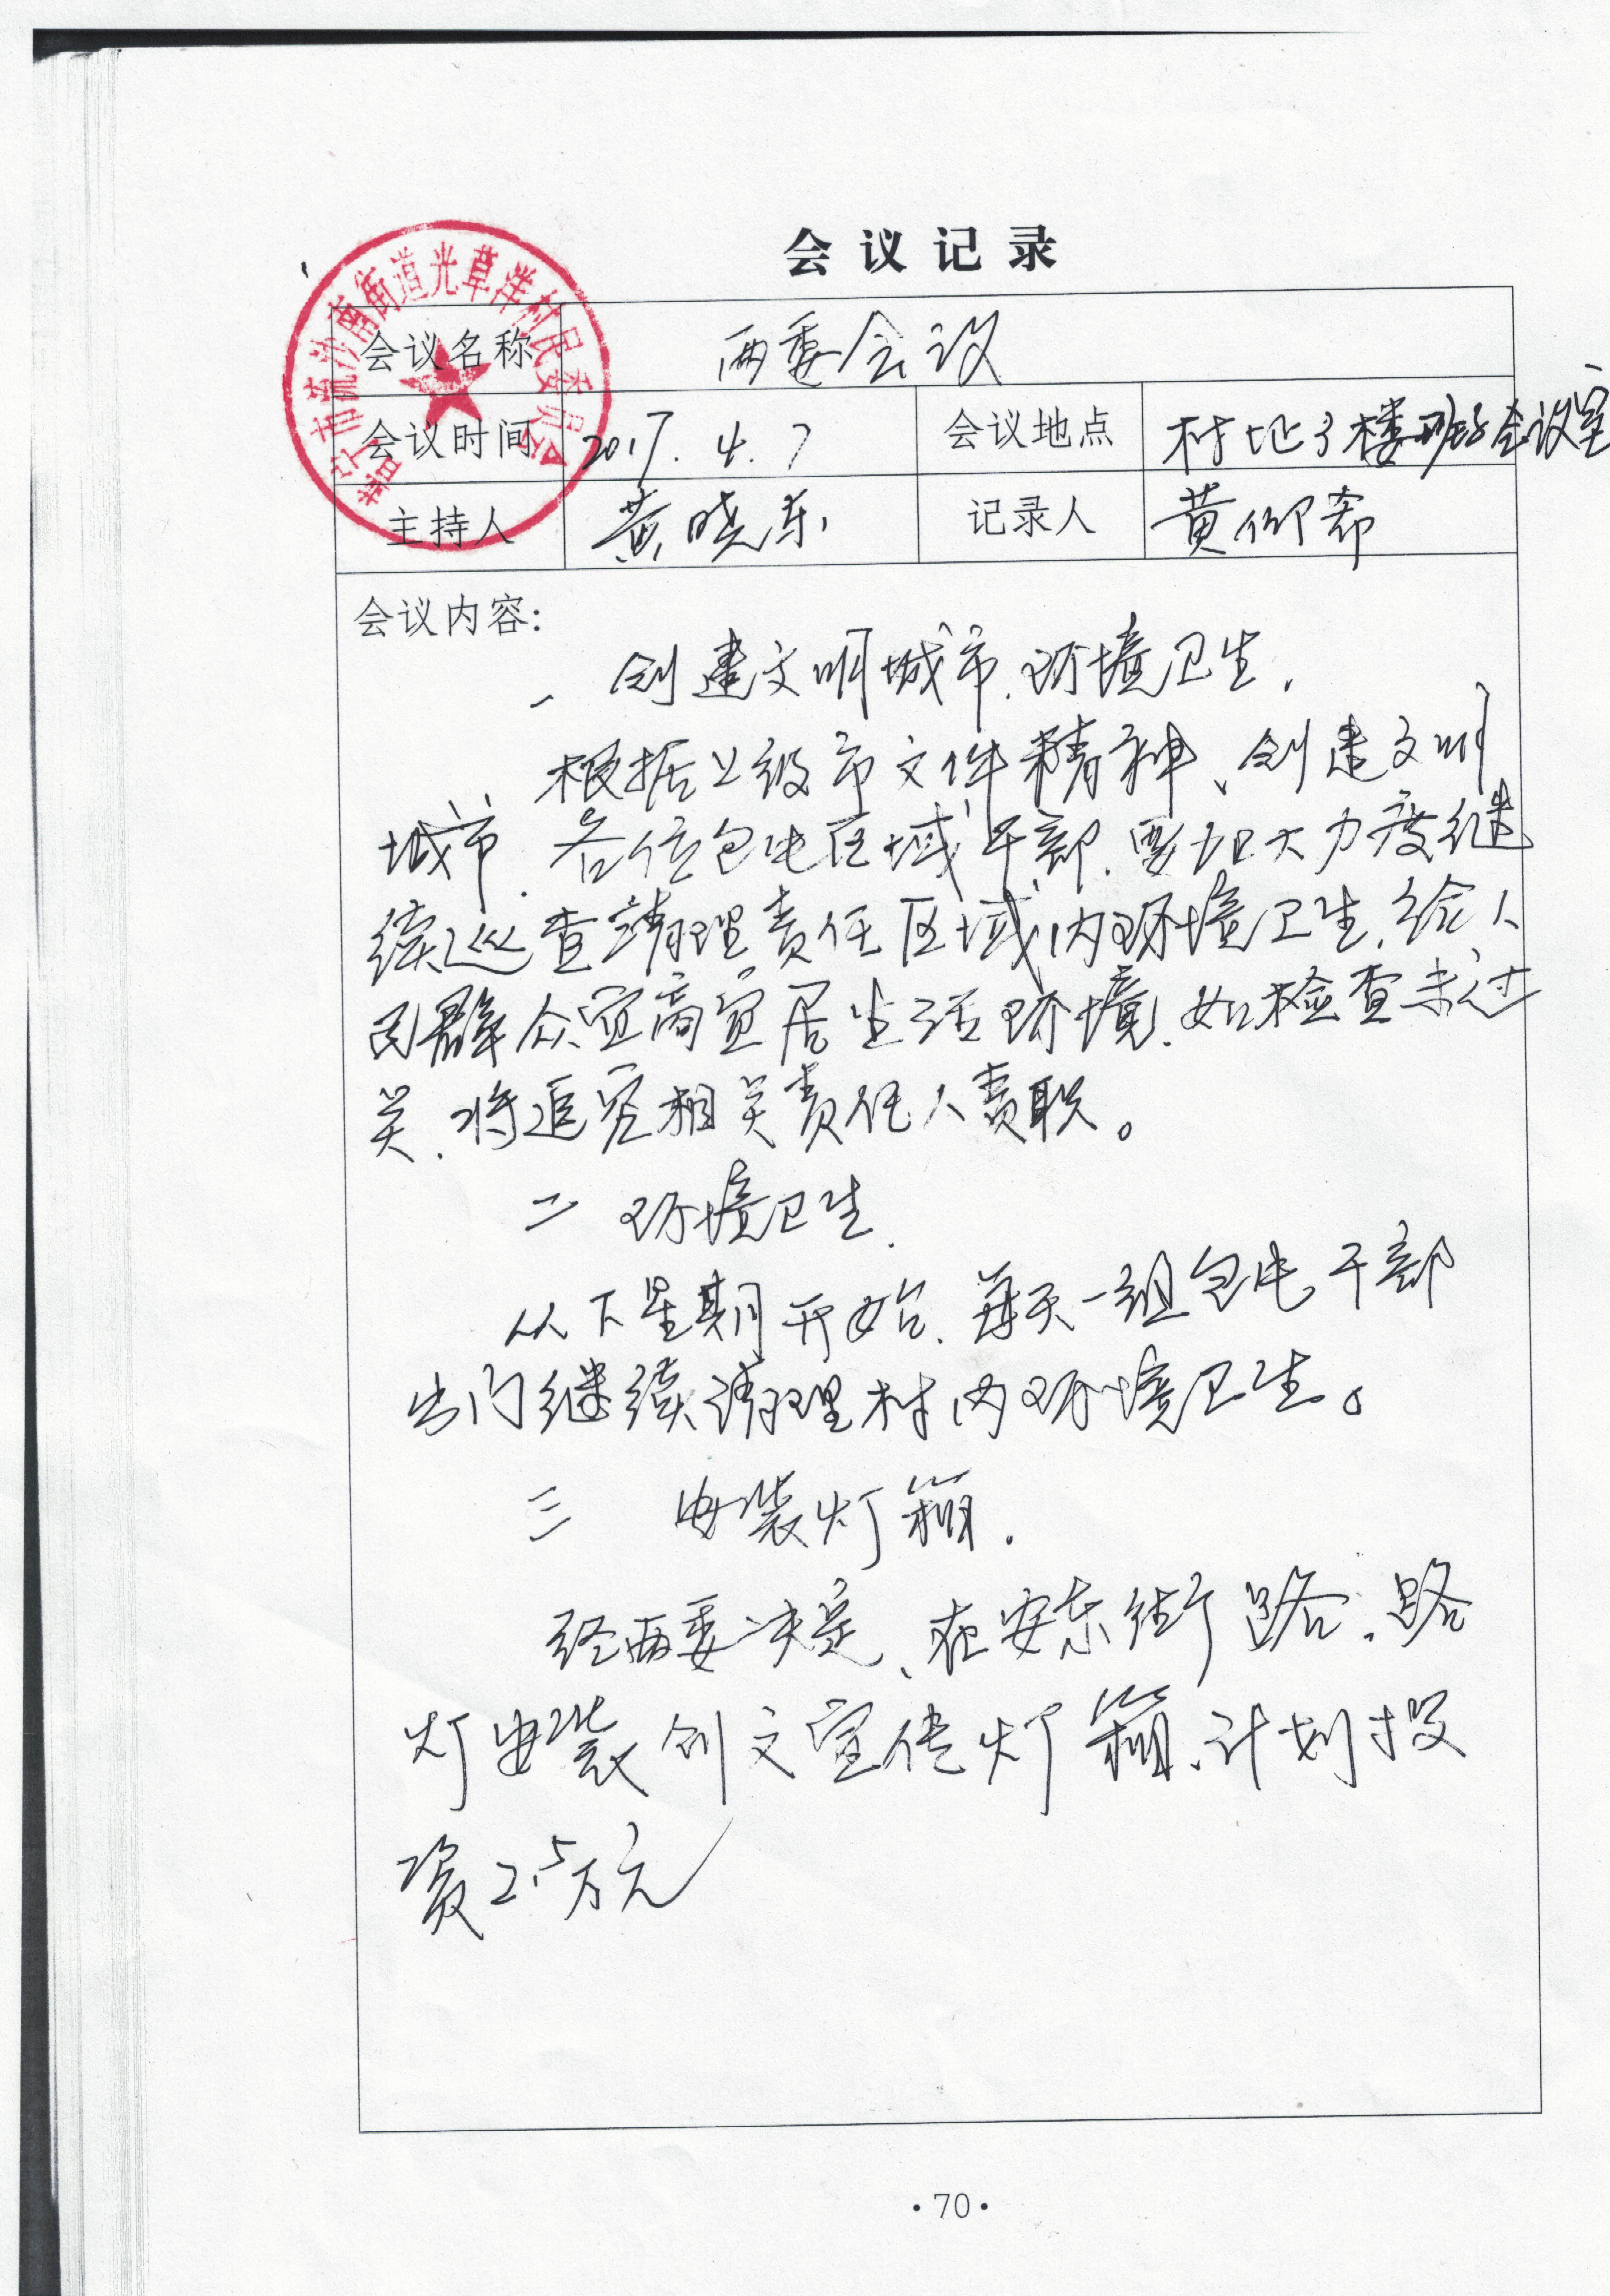 会议记录
普宁市流沙南街道光草洋村民委员会
会议名称 两委会议
会议时间 2017.4.7 会议地点 村址3楼班子会议室
主持人 黄晓东 记录人 黄仰
会议内容:
一 创建文明城市、环境卫生.
根据上级市文件精神、创建文明
城市.各位包屯区域干部.要加大力度继
续巡查清理责任区域内环境卫生.给人
民群众宜商宜居生活环境.如检查未过
关.将追究相关责任人责职。
二 环境卫生.
从下星期开始.每天一组包屯干部
出门继续清理村内环境卫生。
三 安装灯箱.
经两委决定、在安东街路.路
灯安装创文宣传灯箱、计划投
资2.5万元
·70·